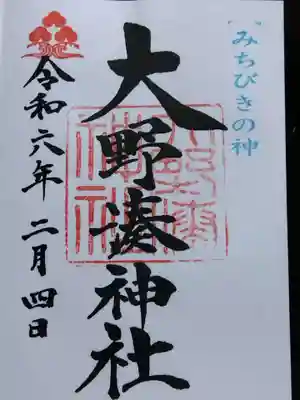 みちびきの神
大野湊神社
令和六年二月四日